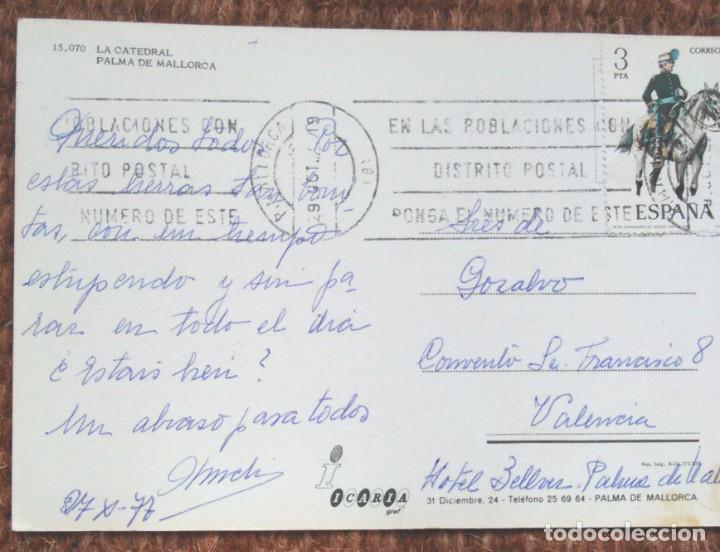 15.070 LA CATEDRAL
PALMA DE MALLORCA
POBLACIONES CON
DISTRITO POSTAL
NUMERO DE ESTE
EN LAS POBLACIONES CON
DISTRITO POSTAL
PONGA EL NUMERO DE ESTE
3
PTA
CORREO
ESPAÑA
Queridos todo Por
estas tierras tan boni
tas, con un tiempo
estupendo y sin pa-
rar en todo el dia
¿ Estais bien?
Un abraso para todos
Sres de
Gosalvo
Convento Sn. Francisco 8
Valencia
Hotel Bellver Palma de
ICARIA
graf
31 Diciembre, 24 - Teléfono 25 69 64 - PALMA DE MALLORCA
todocoleccion